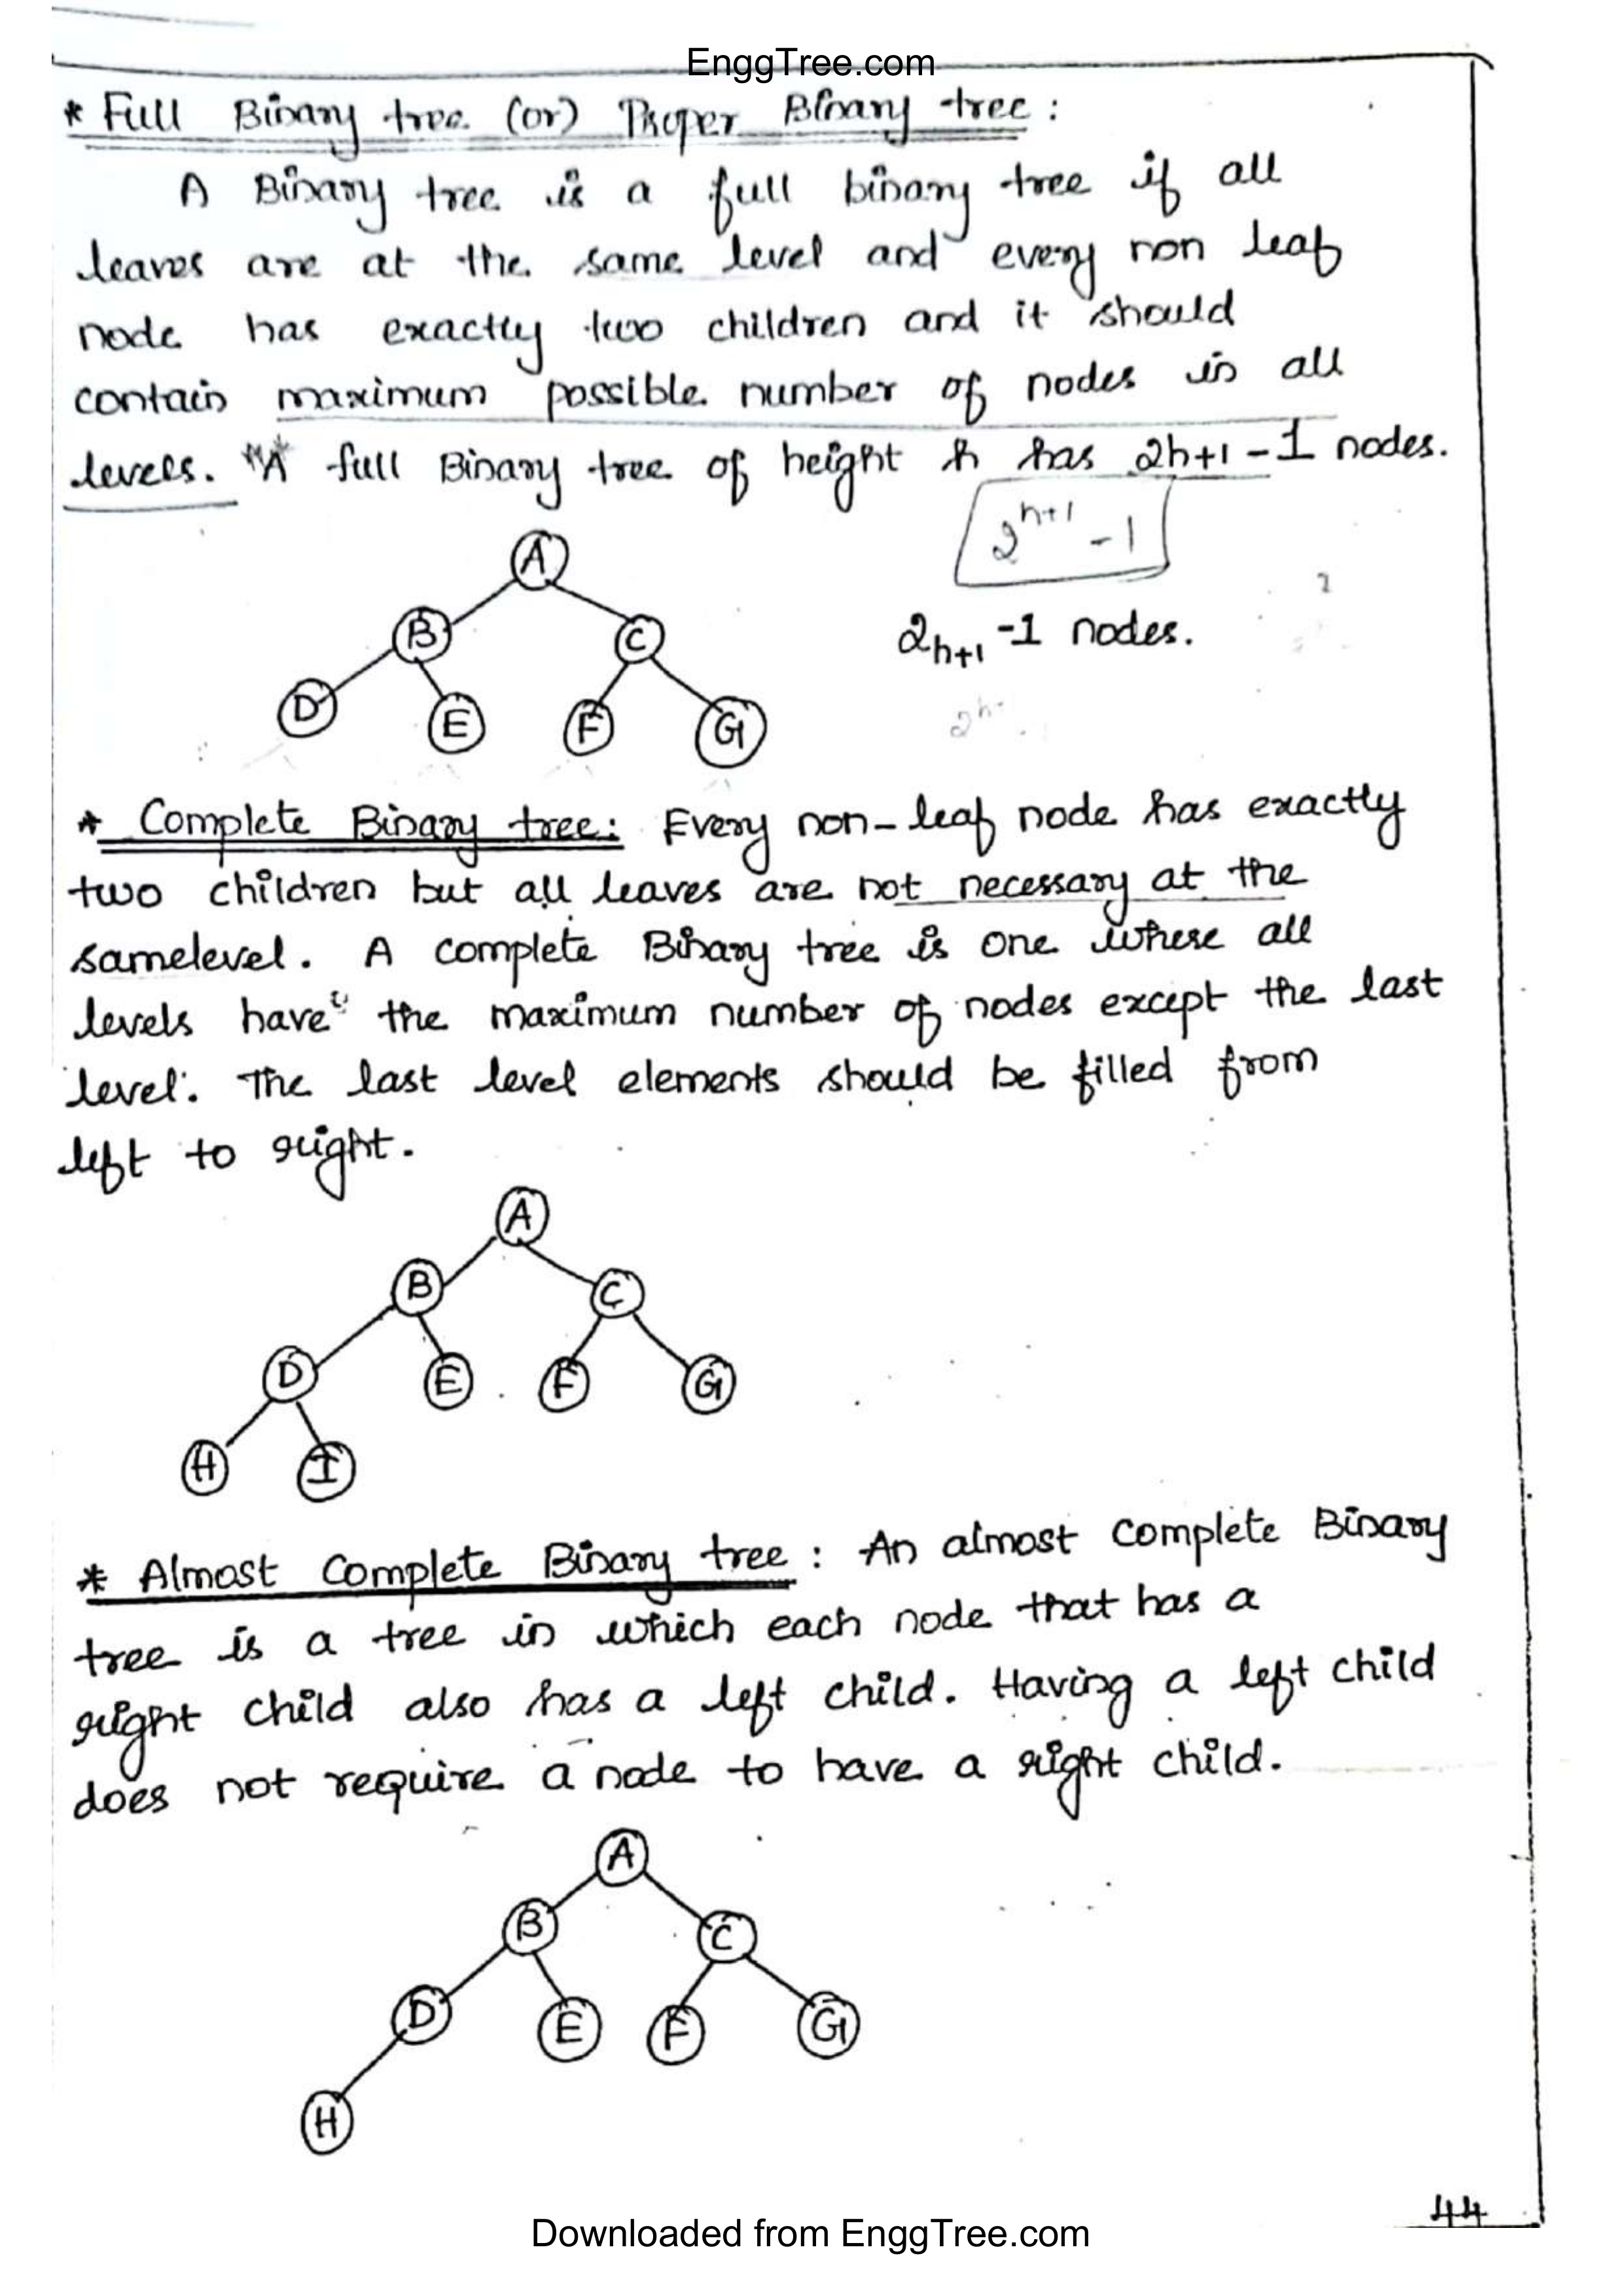 EnggTree.com
* Full Binary tree (or) Proper Binary tree :
A Binary tree is a full binary tree if all
leaves are at the same level and every non leaf
node has exactly two children and it should
contain maximum possible number of nodes in all
levels. "A full Binary tree of height h has 2h+1 -1 nodes.
2^h+1 -1
A
B C
2h+1 -1 nodes.
D E F G
2^h-
* Complete Binary tree: Every non-leaf node has exactly
two children but all leaves are not necessary at the
samelevel. A complete Binary tree is one where all
levels have the maximum number of nodes except the last
level. The last level elements should be filled from
left to right.
A
B C
D E F G
H I
* Almost Complete Binary tree : An almost complete Binary
tree is a tree in which each node that has a
right child also has a left child. Having a left child
does not require a node to have a right child.
A
B C
D E F G
H
44
Downloaded from EnggTree.com